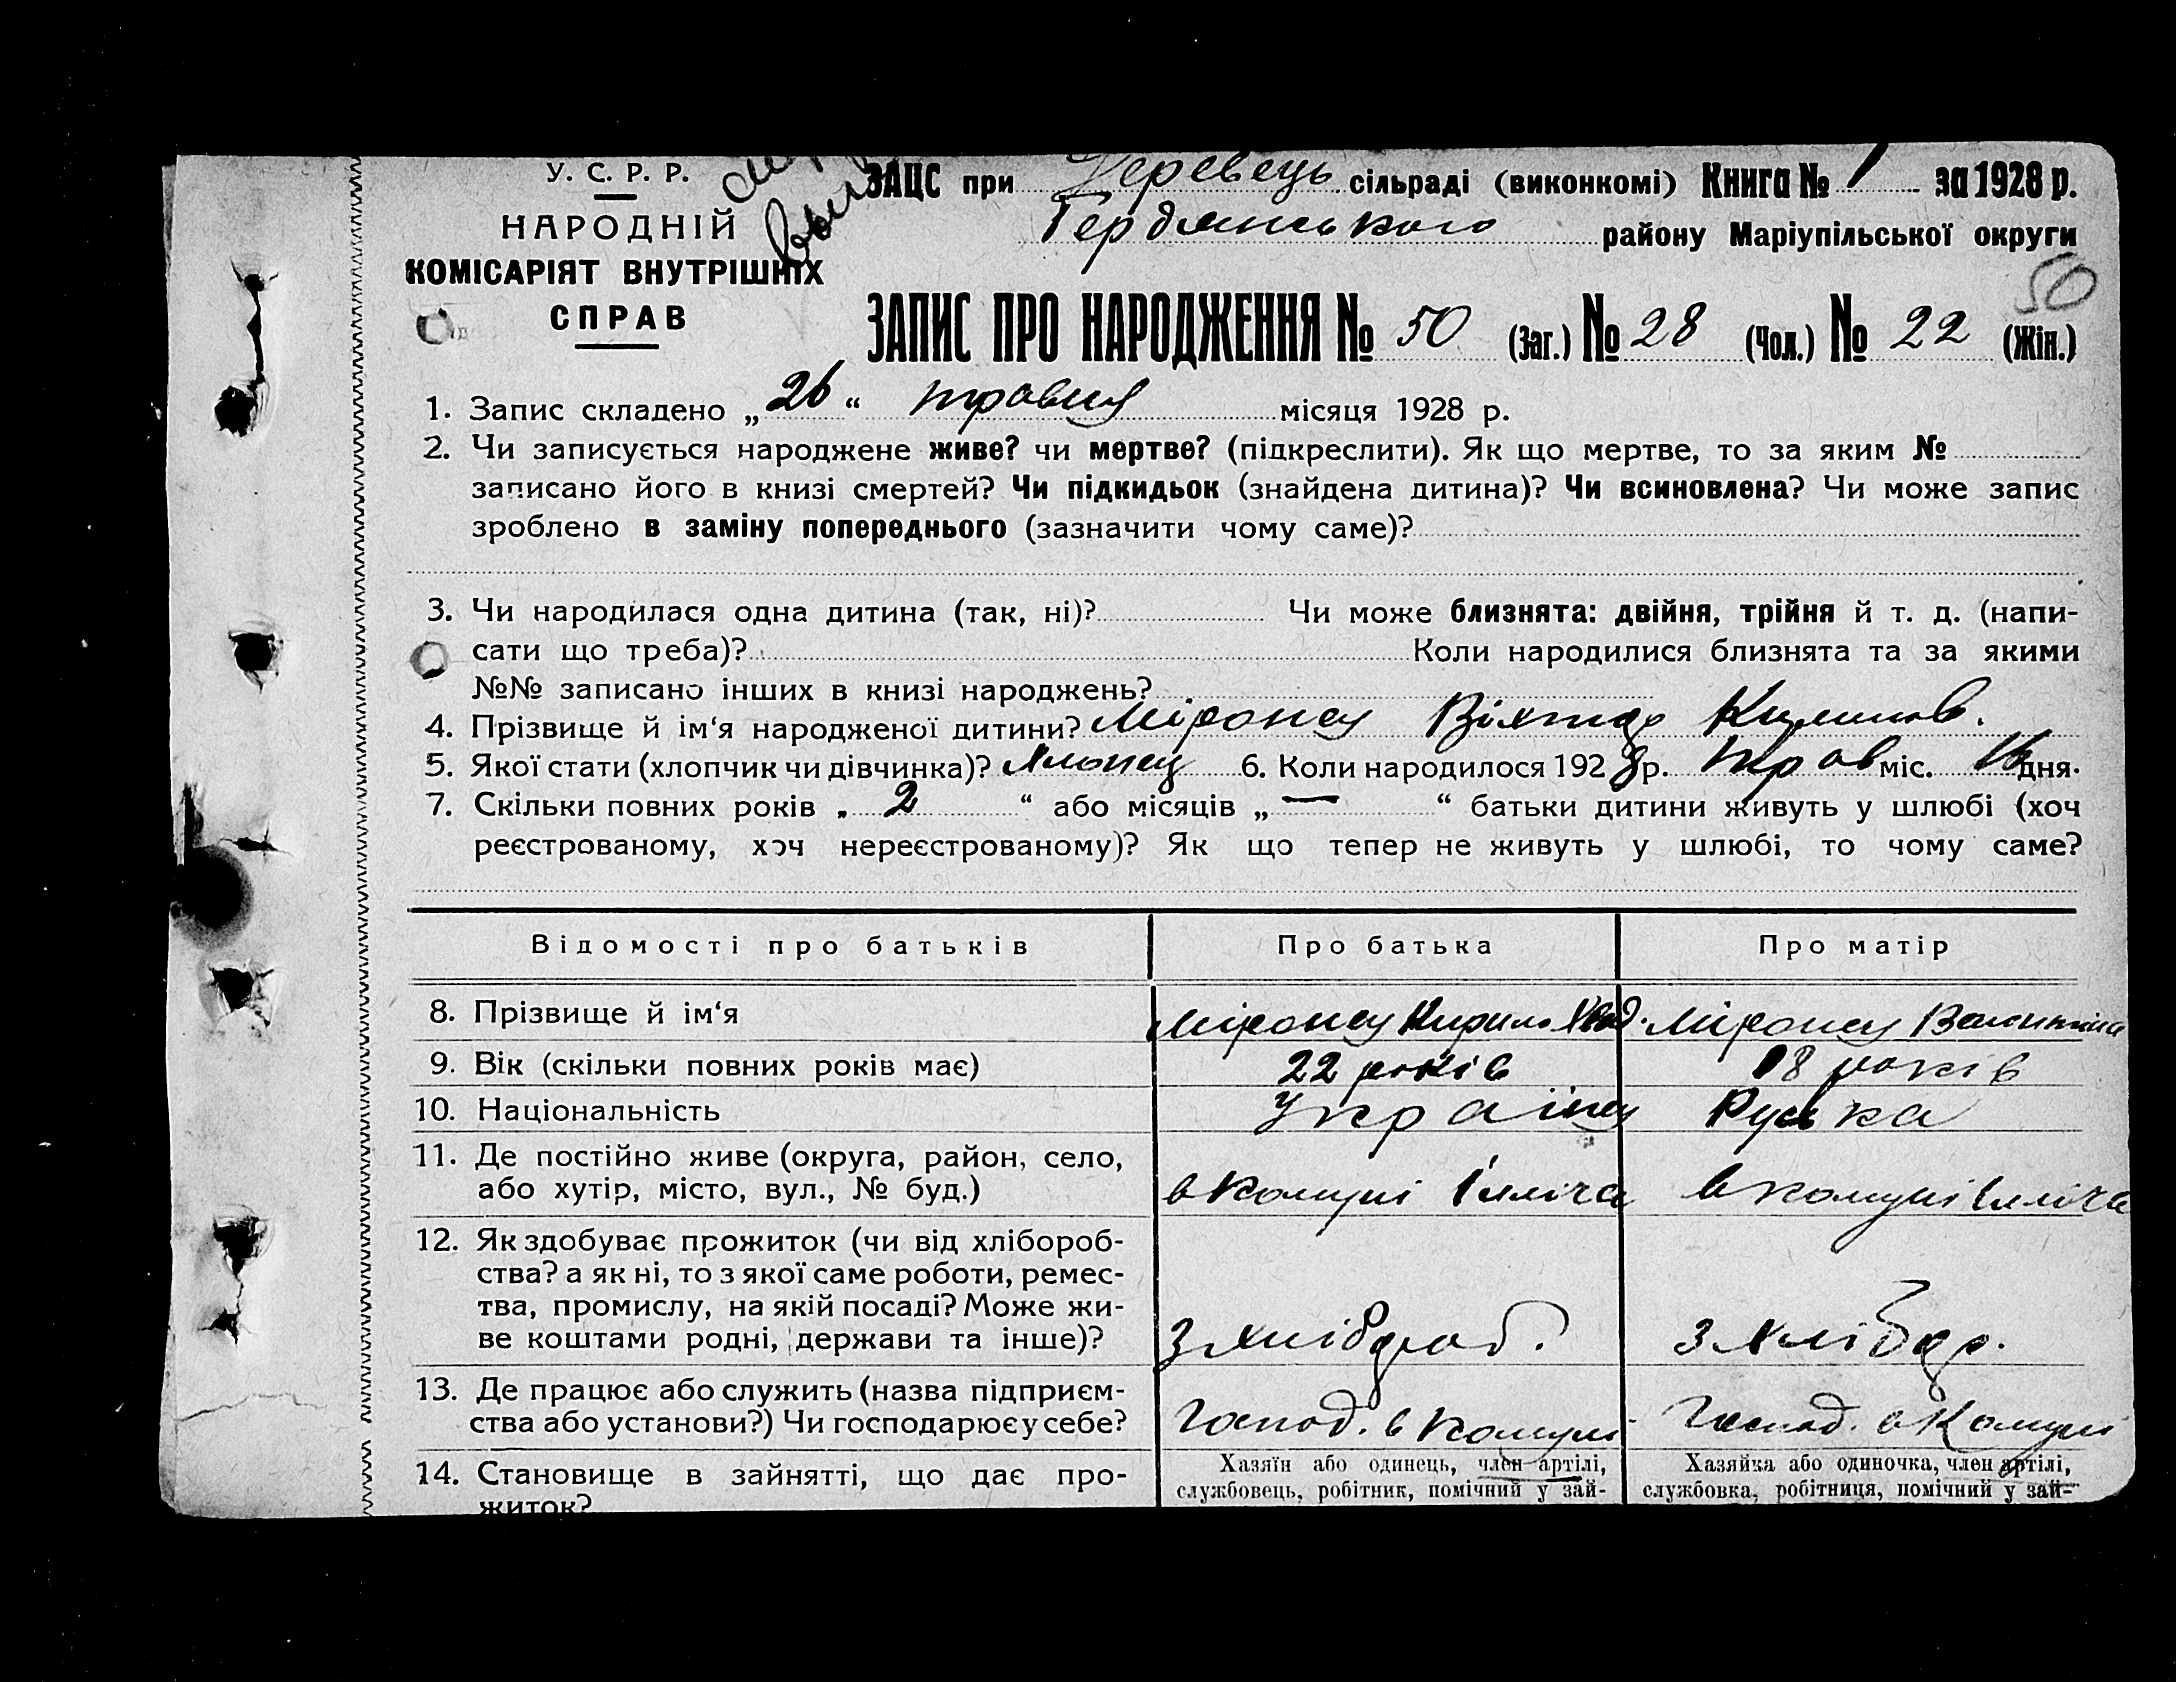 У. С. Р. Р.
НАРОДНІЙ
КОМІСАРІЯТ ВНУТРІШНІХ
СПРАВ
ЗАЦС при сільраді (виконкомі) Книга № 1 за 1928 р.
району Маріупільської округи
50
ЗАПИС ПРО НАРОДЖЕННЯ № 50 (Заг.) № 28 (Чол.) № 22 (Жін.)
1. Запис складено „ 26 “ травня місяця 1928 р.
2. Чи записується народжене живе? чи мертве? (підкреслити). Як що мертве, то за яким №
записано його в книзі смертей? Чи підкидьок (знайдена дитина)? Чи всиновлена? Чи може запис
зроблено в заміну попереднього (зазначити чому саме)?
3. Чи народилася одна дитина (так, ні)? Чи може близнята: двійня, трійня й т. д. (напи-
сати що треба)? Коли народилися близнята та за якими
№№ записано інших в книзі народжень?
4. Прізвище й ім‘я народженої дитини? Віктор
5. Якої стати (хлопчик чи дівчинка)? 6. Коли народилося 1928 р. трав міс. 16 дня.
7. Скільки повних років „ 2 “ або місяців „ — “ батьки дитини живуть у шлюбі (хоч
реєстрованому, хоч нереєстрованому)? Як що тепер не живуть у шлюбі, то чому саме?
Відомості про батьків Про батька Про матір
8. Прізвище й ім‘я Кирило Валентина
9. Вік (скільки повних років має) 22 років 18 років
10. Національність Українец Руська
11. Де постійно живе (округа, район, село,
або хутір, місто, вул., № буд.) в комуні Ілліча в комуні Ілліча
12. Як здобуває прожиток (чи від хлібороб-
ства? а як ні, то з якої саме роботи, ремес-
тва, промислу, на якій посаді? Може жи-
ве коштами родні, держави та інше)? З хлібороб. З хлібор.
13. Де працює або служить (назва підприєм-
ства або установи?) Чи господарює у себе? Господ. в Комуні Господ. в Комуні
14. Становище в зайнятті, що дає про-
житок?
Хазяїн або одинець, член артілі,
службовець, робітник, помічний у зай-
Хазяйка або одиночка, член артілі,
службовка, робітниця, помічний у зай-